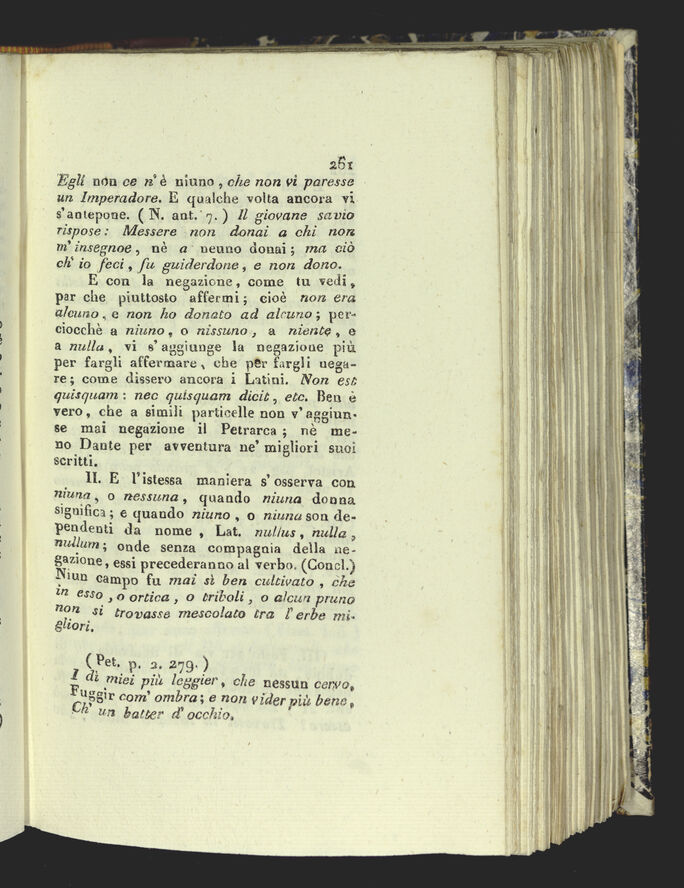 261
Egli non ce n'è niuno, che non vi paresse
un Imperadore. E qualche volta ancora vi
s'antepone. (N. ant. 7.) Il giovane savio
rispose: Messere non donai a chi non
m'insegnoe, nè a neuno donai; ma ciò
ch'io feci, fu guiderdone, e non dono.
E con la negazione, come tu vedi,
par che piuttosto affermi; cioè non era
alcuno, e non ho donato ad alcuno; per-
ciocchè a niuno, o nissuno, a niente, e
a nulla, vi s'aggiunge la negazione più
per fargli affermare, che per fargli nega-
re; come dissero ancora i Latini. Non est
quisquam: nec quisquam dicit, etc. Ben è
vero, che a simili particelle non v'aggiun-
se mai negazione il Petrarca; nè me-
no Dante per avventura ne' migliori suoi
scritti.
II. E l'istessa maniera s'osserva con
niuna, o nessuna, quando niuna donna
significa; e quando niuno, o niuna son de-
pendenti da nome, Lat. nullus, nulla,
nullum; onde senza compagnia della ne-
gazione, essi precederanno al verbo. (Concl.)
Niun campo fu mai sì ben cultivato, che
in esso, o ortica, o triboli, o alcun pruno
non si trovasse mescolato tra l'erbe mi-
gliori.
(Pet. p. 2. 279.)
I dì miei più leggier, che nessun cervo,
Fuggir com' ombra; e non vider più bene,
Ch' un batter d'occhio.